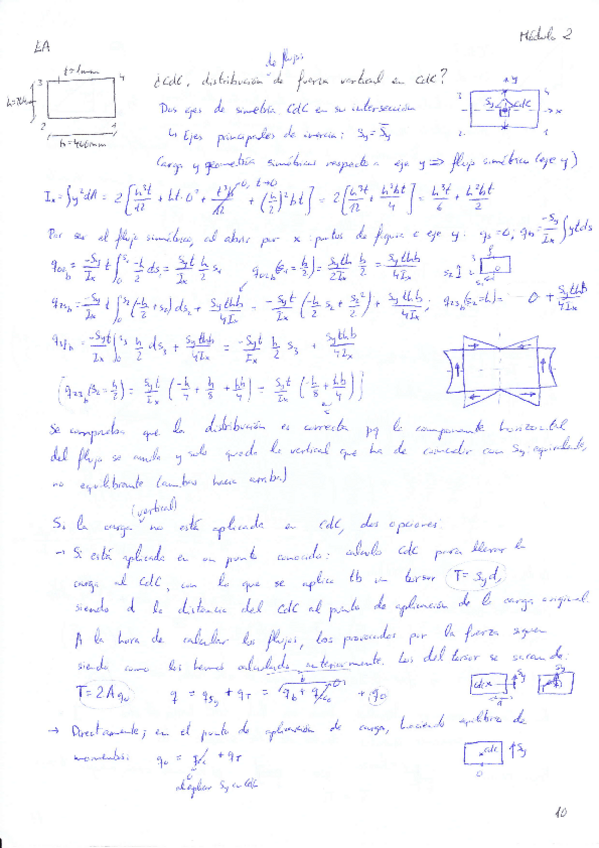 EA
Módulo 2
de flujos
t=1mm
3 4
2
¿CdC, distribución de fuerza vertical en CdC?
Dos ejes de simetría CdC en su intersección
↳ Ejes principales de inercia: Sy = S̄y
Carga y geometría simétricas respecto a eje y ⇒ flujo simétrico (eje y)
Ix = ∫y²dA = 2[h³t/12 + bt·0² + t³b/12 + (h/2)²bt] = 2[h³t/12 + h²bt/4] = h³t/6 + h²bt/2
Por ser el flujo simétrico, al abrir por x: puntos de figura c eje y: q0=0; qb = -Sy/Ix ∫ytds
-Sy/Ix t ∫ -h/2 ds1 = Syt/Ix h/2 s1 (s1=b/2) = Syth/2Ix b/2 = Sythb/4Ix
q23b = -Sy/Ix t ∫(-h/2 + s2) ds2 + Sythb/4Ix = -Syt/Ix (-h/2 s2 + s2²/2) + Sythb/4Ix; q23b(s2=h) = 0 + Sythb/4Ix
-Syt/Ix ∫ h/2 ds3 + Sythb/4Ix = -Syt/Ix h/2 s3 + Sythb/4Ix
Se comprueba que la distribución es correcta pq la componente horizontal
del flujo se anula y solo queda la vertical que ha de coincidir con Sy: equivalente,
no equilibrante (ambos hacia arriba)
(vertical)
Si la carga no está aplicada en CdC, dos opciones:
→ Si está aplicada en un punto conocido: calculo CdC para llevar la
carga al CdC, con lo que se aplica tb un torsor T=Syd,
siendo d la distancia del CdC al punto de aplicación de la carga original.
A la hora de calcular los flujos, los provocados por la fuerza siguen
siendo como los hemos calculado anteriormente. Los del torsor se suman de:
T=2Aq0 q = qSy + qT = qb + q0 + q0
→ Directamente; en el punto de aplicación de carga, haciendo equilibrio de
momentos: q0 = + qT
al aplicar Sy en CdC
CdC
Sy
10